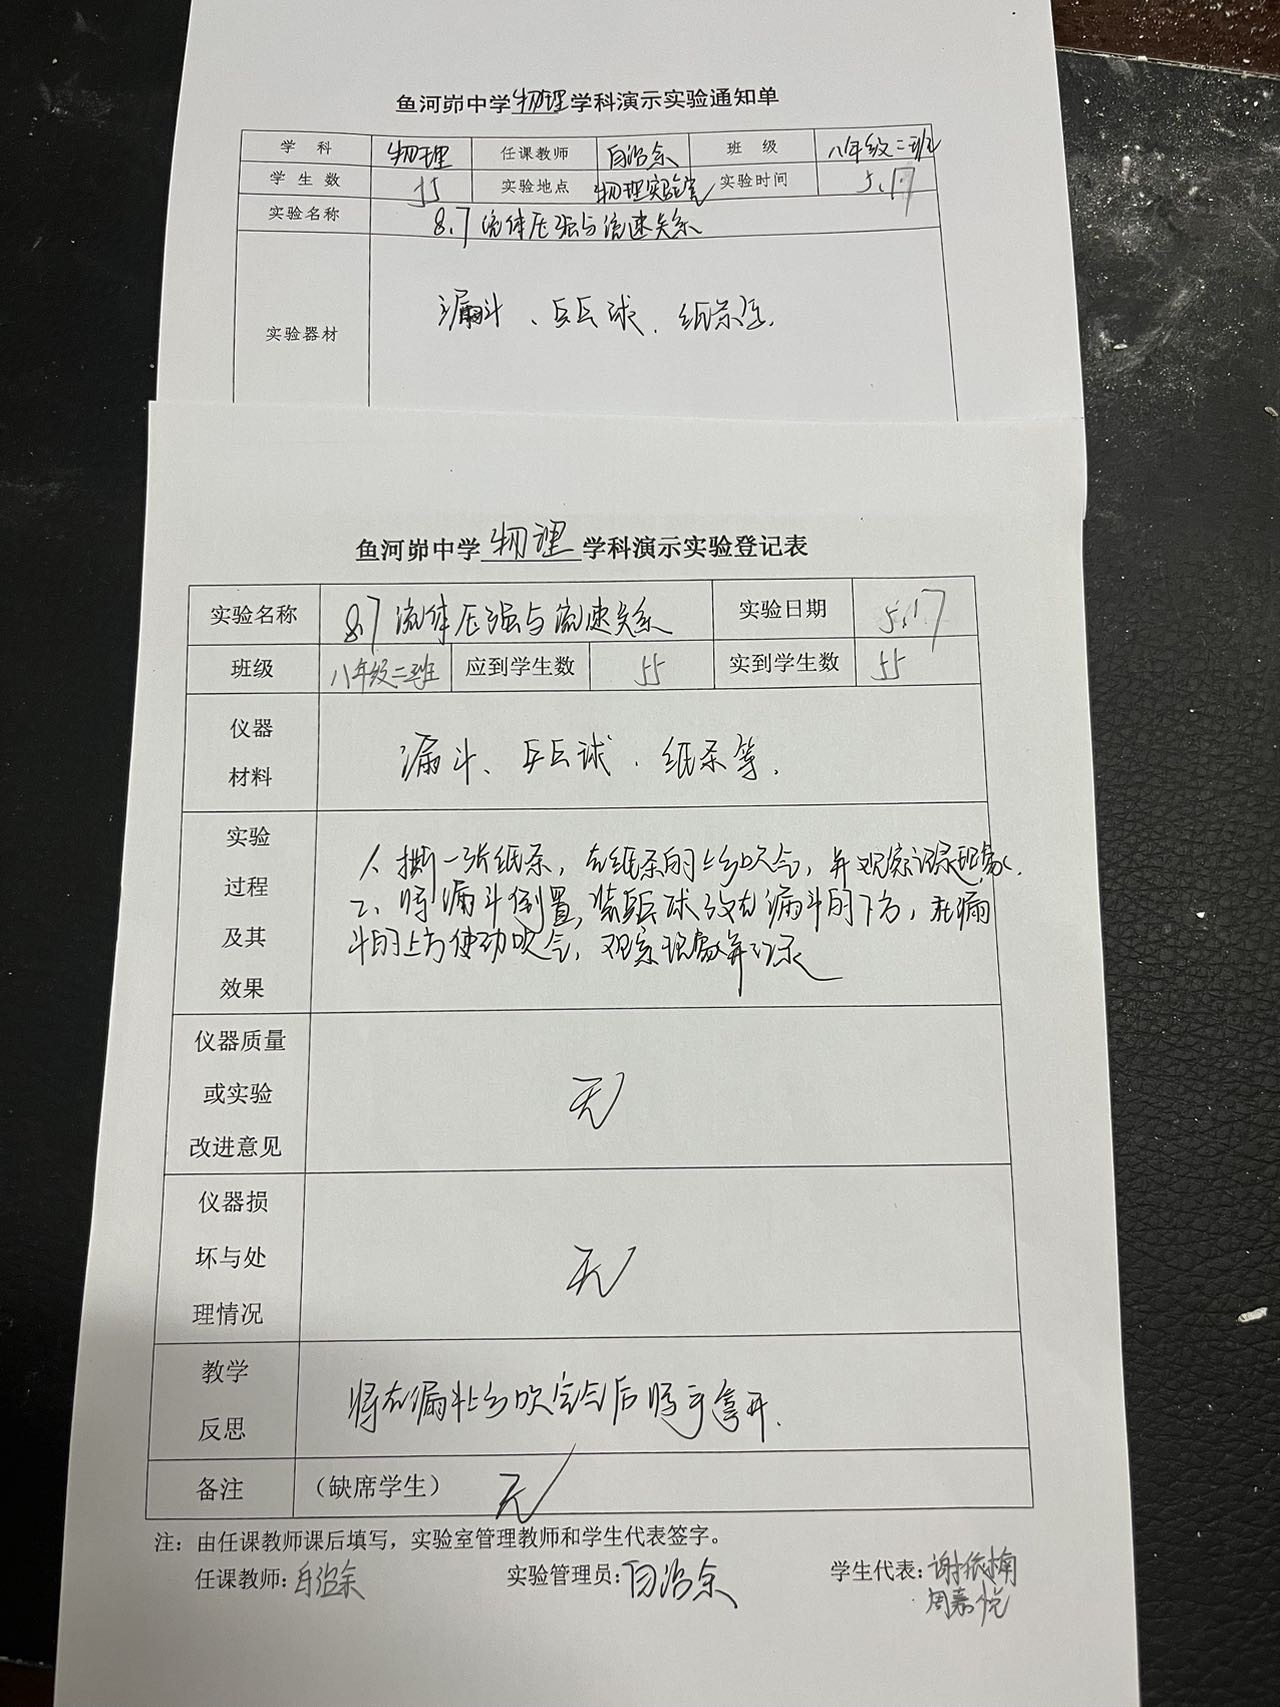 鱼河峁中学物理学科演示实验通知单
学 科 物理 任课教师 白治余 班 级 八年级二班
学 生 数 55 实验地点 物理实验室 实验时间 5.17
实验名称 8.7 流体压强与流速关系
实验器材 漏斗、乒乓球、纸条等.
鱼河峁中学 物理 学科演示实验登记表
实验名称 8.7 流体压强与流速关系 实验日期 5.17
班级 八年级二班 应到学生数 55 实到学生数 55
仪器
材料
漏斗、乒乓球、纸条等.
实验
过程
及其
效果
1、撕一张纸条，在纸条的上方吹气，并观察记录现象.
2、将漏斗倒置，乒乓球放在漏斗的下方，在漏
斗的上方使劲吹气，观察现象并记录
仪器质量
或实验
改进意见
无
仪器损
坏与处
理情况
无
教学
反思
将在漏斗上方吹完气后将手拿开.
备注 （缺席学生） 无
注：由任课教师课后填写，实验室管理教师和学生代表签字。
任课教师: 白治余 实验管理员: 白治余 学生代表: 谢依楠
周嘉悦